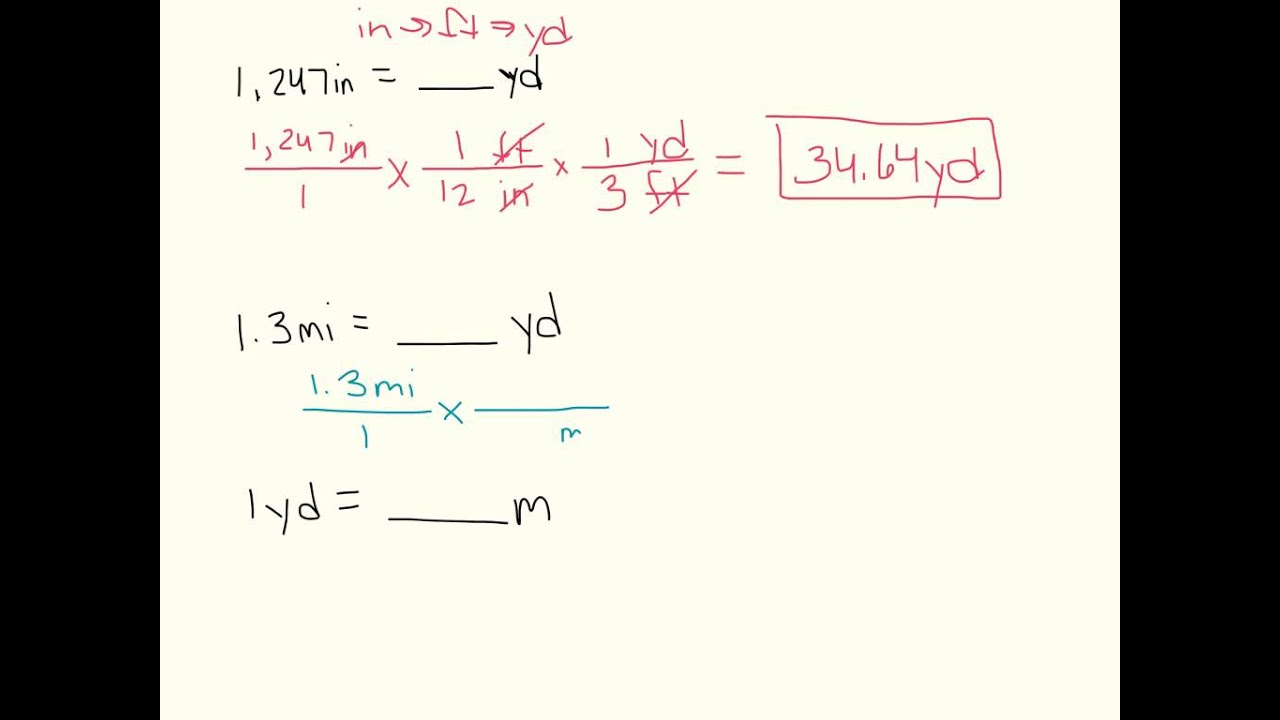 in → ft ⇒ yd
1,247in = ___ yd
1,247in/1 × 1 ft/12 in × 1 yd/3 ft = 34.64yd
1.3mi = ___ yd
1.3mi/1 × ___/m
1yd = ___ m